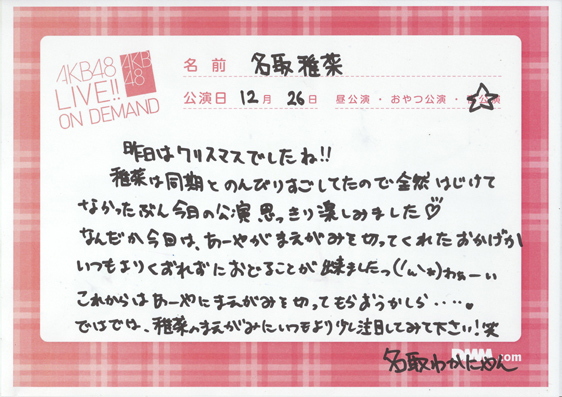 AKB48
LIVE!!
ON DEMAND
AKB
48
名前 名取稚菜
公演日 12月 26日 昼公演・おやつ公演・公演
昨日はクリスマスでしたね!!
稚菜は同期とのんびりすごしてたので全然はじけて
なかったぶん今日の公演思っきり楽しみました♡
なんだか今回は、あーやがまえがみを切ってくれたおかげか
いつもよりくずれずにおどることが出来ましたっ わぁーい
これからはあーやにまえがみを切ってもらおうかしら・・・・。
ではでは、稚菜のまえがみにいつもより少し注目してみて下さい!笑
名取わかにゃん
.com